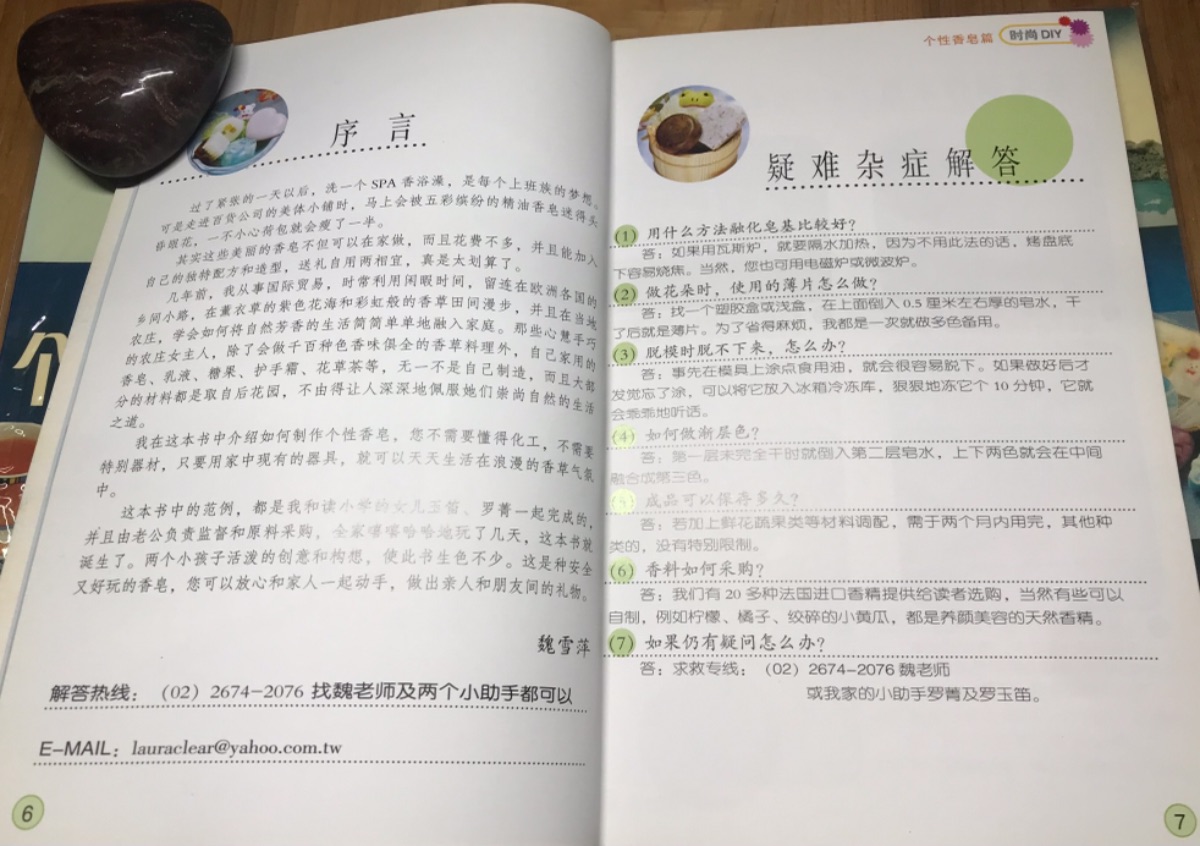 序言
过了紧张的一天以后，洗一个 SPA 香浴澡，是每个上班族的梦想。
可是走进百货公司的美体小铺时，马上会被五彩缤纷的精油香皂迷得头
昏眼花，一不小心荷包就会瘦了一半。
其实这些美丽的香皂不但可以在家做，而且花费不多，并且能加入
自己的独特配方和造型，送礼自用两相宜，真是太划算了。
几年前，我从事国际贸易，时常利用闲暇时间，留连在欧洲各国的
乡间小路，在薰衣草的紫色花海和彩虹般的香草田间漫步，并且在当地
农庄，学会如何将自然芳香的生活简简单单地融入家庭。那些心慧手巧
的农庄女主人，除了会做千百种色香味俱全的香草料理外，自己家用的
香皂、乳液、糖果、护手霜、花草茶等，无一不是自己制造，而且大部
分的材料都是取自后花园，不由得让人深深地佩服她们崇尚自然的生活
之道。
我在这本书中介绍如何制作个性香皂，您不需要懂得化工，不需要
特别器材，只要用家中现有的器具，就可以天天生活在浪漫的香草气氛
中。
这本书中的范例，都是我和读小学的女儿玉笛、罗菁一起完成的，
并且由老公负责监督和原料采购，全家嘻嘻哈哈地玩了几天，这本书就
诞生了。两个小孩子活泼的创意和构想，使此书生色不少。这是种安全
又好玩的香皂，您可以放心和家人一起动手，做出亲人和朋友间的礼物。
魏雪萍
解答热线：（02）2674-2076 找魏老师及两个小助手都可以
E-MAIL：lauraclear@yahoo.com.tw
6
个性香皂篇 时尚 DIY
疑难杂症解答
(1) 用什么方法融化皂基比较好？
答：如果用瓦斯炉，就要隔水加热，因为不用此法的话，烤盘底
下容易烧焦。当然，您也可用电磁炉或微波炉。
(2) 做花朵时，使用的薄片怎么做？
答：找一个塑胶盒或浅盒，在上面倒入 0.5 厘米左右厚的皂水，干
了后就是薄片。为了省得麻烦，我都是一次就做多色备用。
(3) 脱模时脱不下来，怎么办？
答：事先在模具上涂点食用油，就会很容易脱下。如果做好后才
发觉忘了涂，可以将它放入冰箱冷冻库，狠狠地冻它个 10 分钟，它就
会乖乖地听话。
(4) 如何做渐层色？
答：第一层未完全干时就倒入第二层皂水，上下两色就会在中间
融合成第三色。
(5) 成品可以保存多久？
答：若加上鲜花蔬果类等材料调配，需于两个月内用完，其他种
类的，没有特别限制。
(6) 香料如何采购？
答：我们有 20 多种法国进口香精提供给读者选购，当然有些可以
自制，例如柠檬、橘子、绞碎的小黄瓜，都是养颜美容的天然香精。
(7) 如果仍有疑问怎么办？
答：求救专线：（02）2674-2076 魏老师
或我家的小助手罗菁及罗玉笛。
7